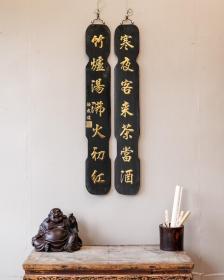 寒夜客来茶當酒
竹爐湯沸火初紅